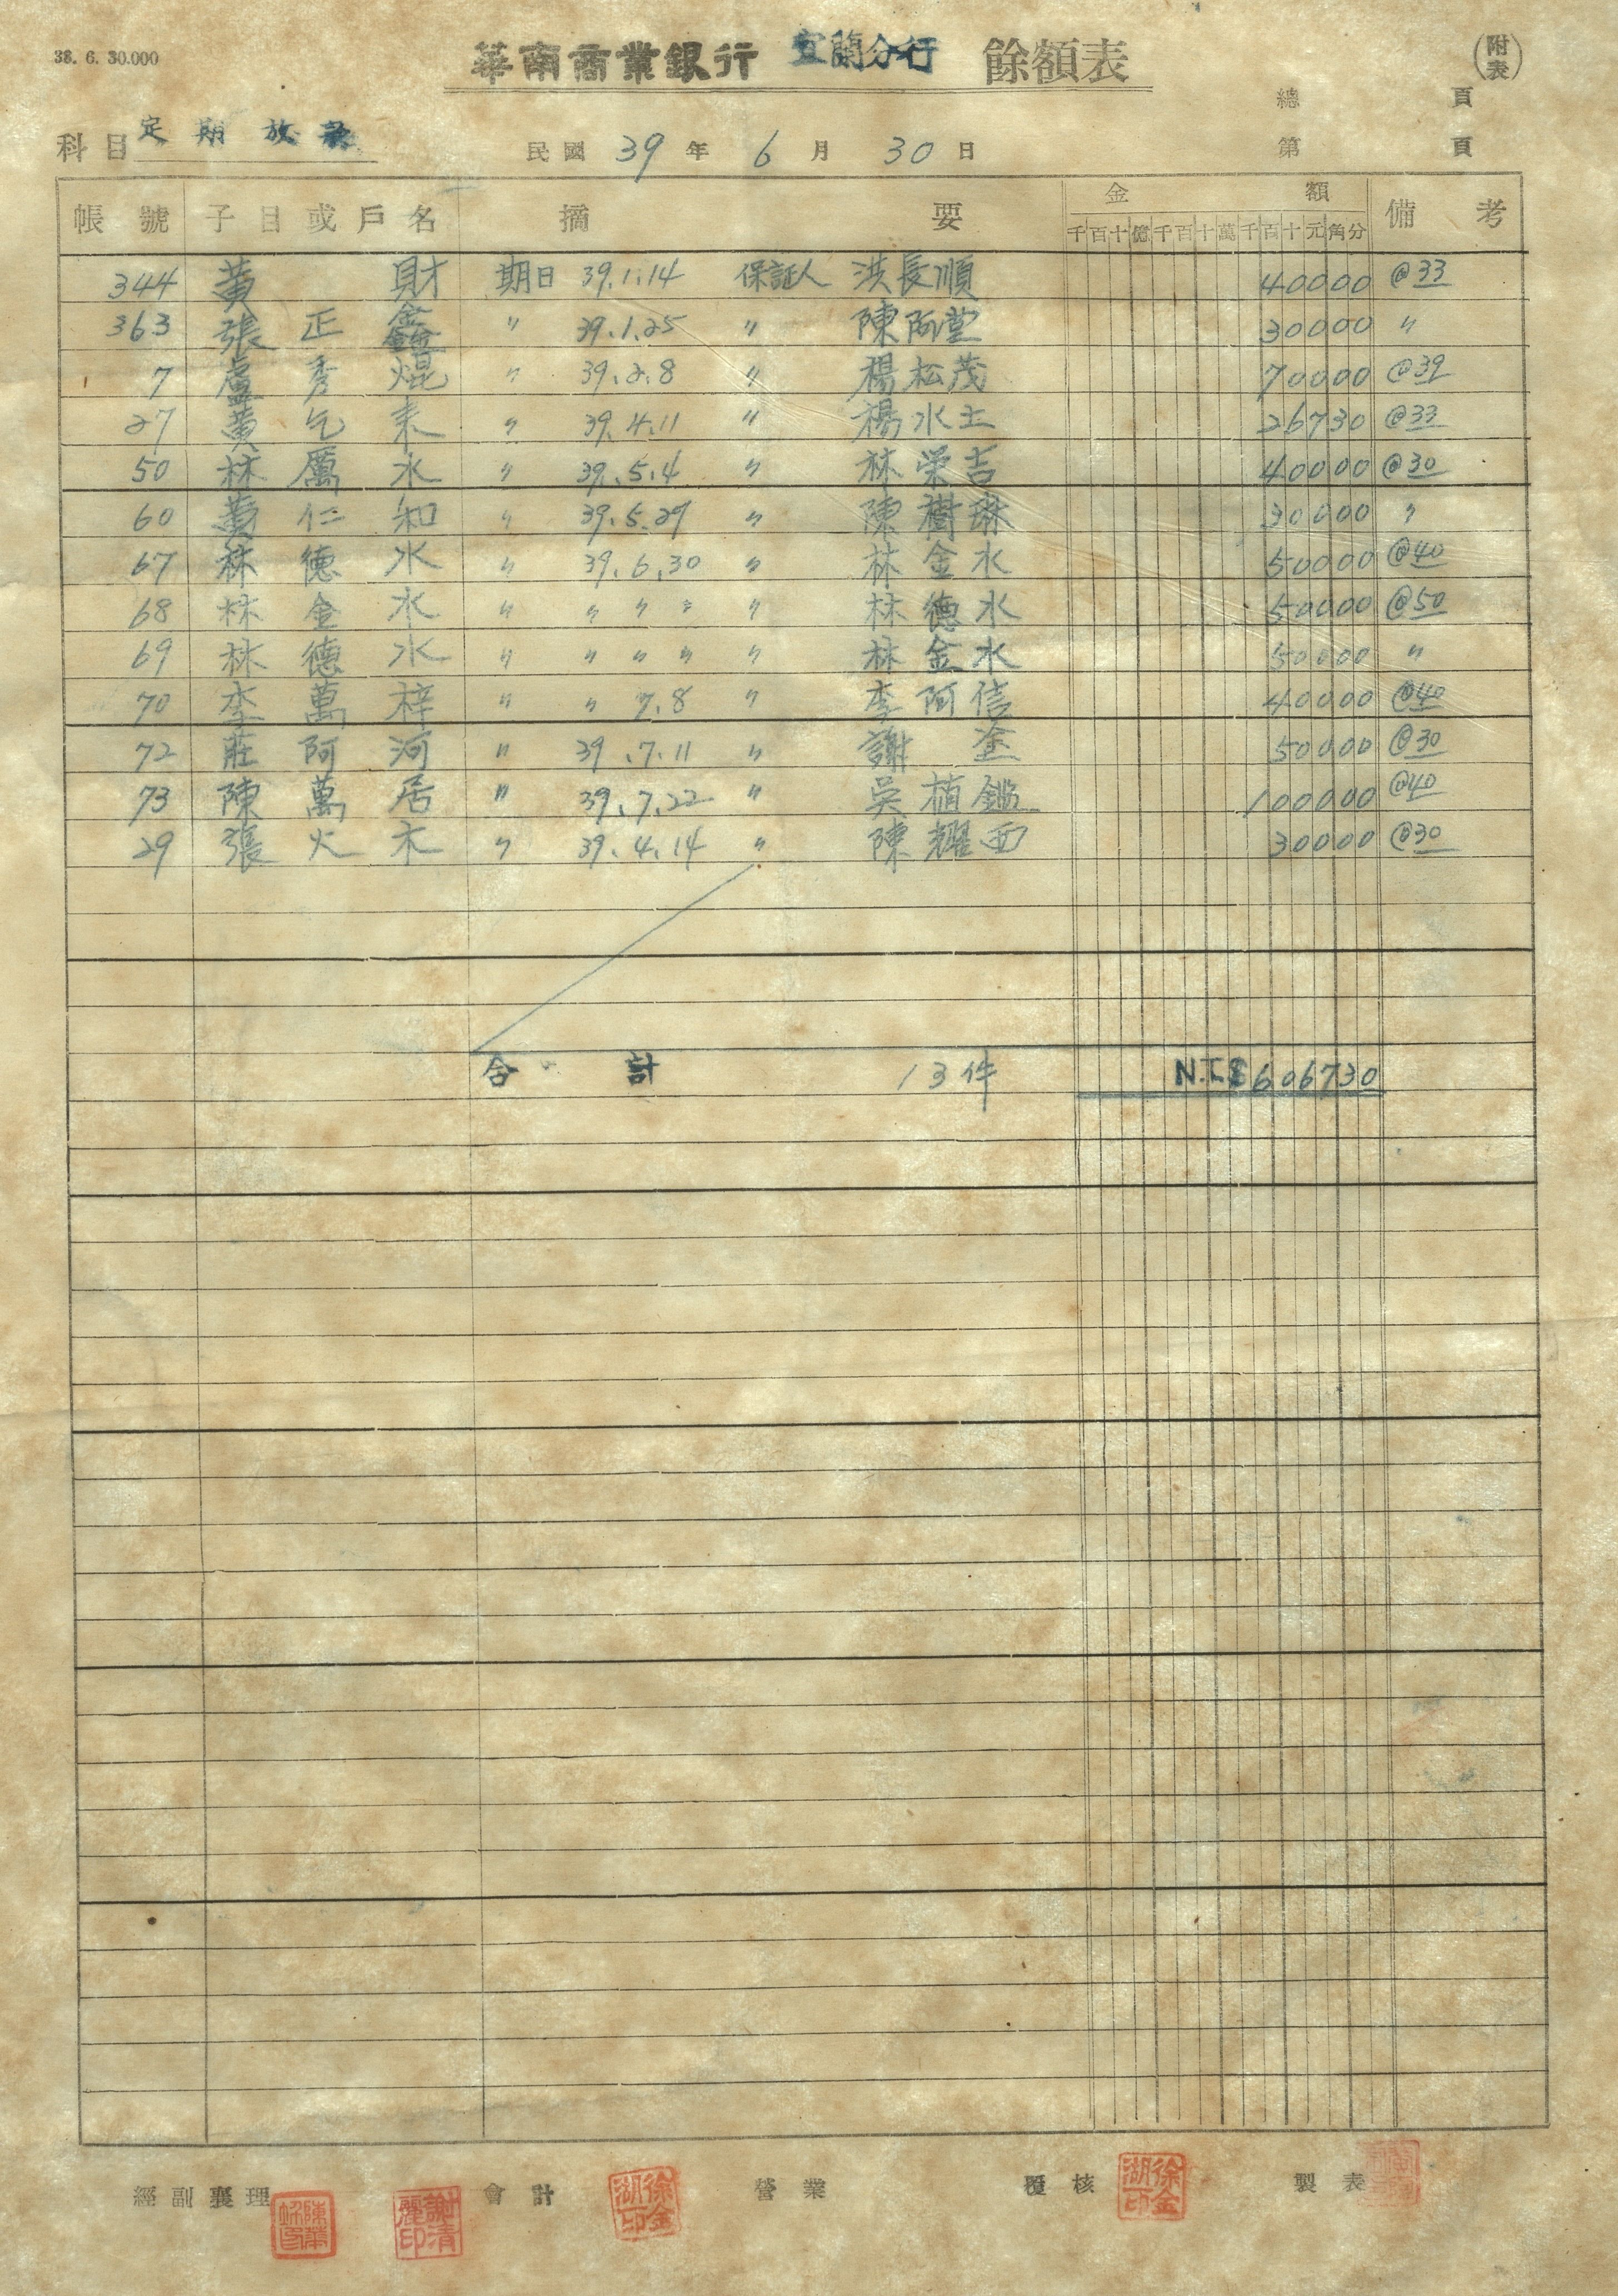 38. 6. 30.000
華南商業銀行 宜蘭分行 餘額表 (附表)
總 頁
科目 定期放款 民國 39 年 6 月 30 日 第 頁
帳號 子目或戶名 摘要 金額 備考
千百十億千百十萬千百十元角分
344 黃財 期日 39.1.14 保証人 洪長順 40000 @33
363 張正鑫 〃 39.1.25 〃 陳阿堂 30000 〃
7 盧秀焜 〃 39.2.8 〃 楊松茂 70000 @39
27 黃乞来 〃 39.4.11 〃 楊水土 26730 @33
50 林厲水 〃 39.5.4 〃 林栄吉 40000 @30
60 黃仁和 〃 39.5.29 〃 陳樹琳 30000 〃
67 林德水 〃 39.6.30 〃 林金水 50000 @40
68 林金水 〃 〃 〃 〃 〃 林德水 50000 @50
69 林德水 〃 〃 〃 〃 〃 林金水 50000 〃
70 李萬梓 〃 〃 7.8 〃 李阿信 40000 @40
72 莊阿河 〃 39.7.11 〃 謝塗 50000 @30
73 陳萬居 〃 39.7.22 〃 吳植鑑 100000 @40
29 張火木 〃 39.4.14 〃 陳耀西 30000 @30
合計 13件 N.T.$606730
經副襄理 謝清麗印 會計 徐金湖印 營業 覆核 徐金湖印 製表